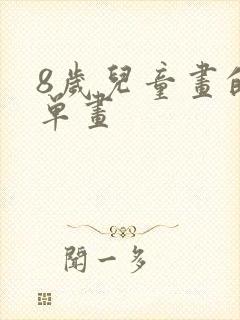 8歲兒童畫的
單畫
聞一多